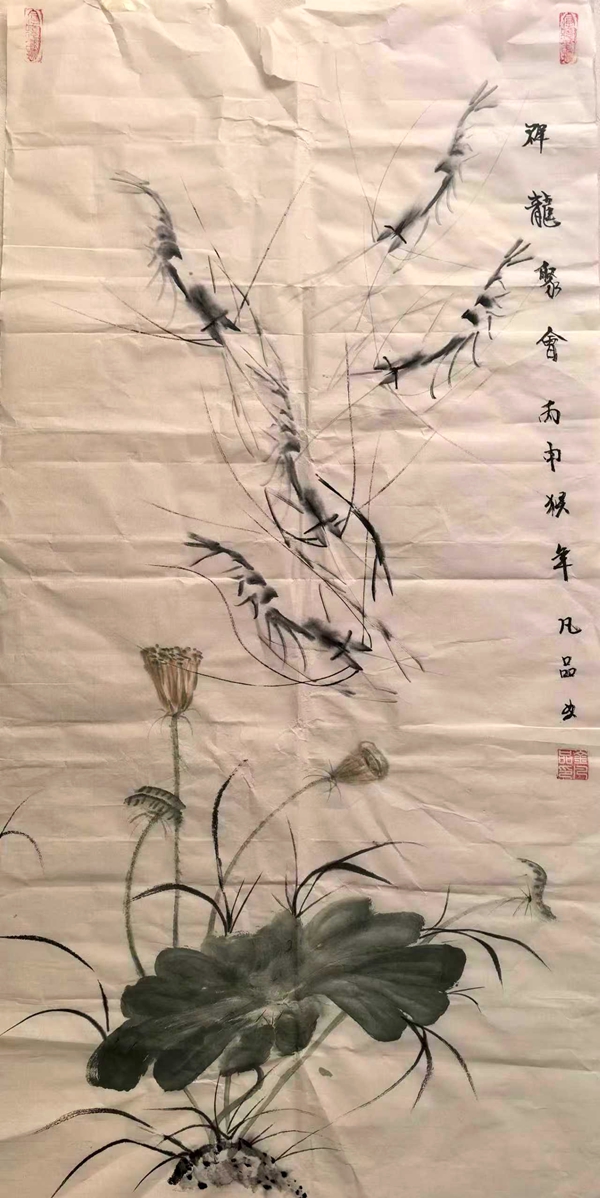 群龍聚會丙申猴年凡品畫